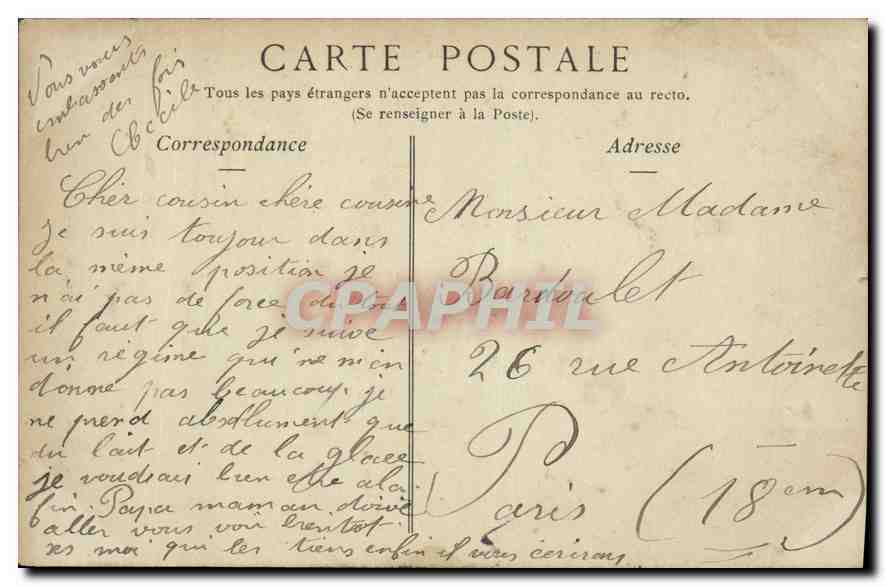 CARTE POSTALE
Tous les pays étrangers n'acceptent pas la correspondance au recto.
(Se renseigner à la Poste).
Correspondance
Adresse
Vous vous
embassont
bien des fois
Cécile
Cher cousin chère cousine
je suis toujour dans
la même position je
n'ai pas de force du tout
il faut que je suive
un régime qui ne m'en
donne pas beaucoup. je
ne prend absolument que
du lait et de la glace
je voudrais bien etre a la
fin. Papa maman doive
aller vous voir bientot
ses moi qui les tiens enfin il vous ecrirons
Monsieur Madame
Bardoulet
26 rue Antoinette
Paris (18em)
CPAPHIL